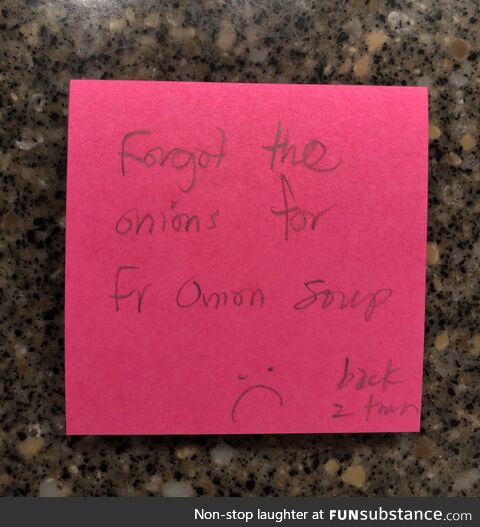 Forgot the
onions for
Fr Onion Soup
back
2 town
Non-stop laughter at FUNsubstance.com